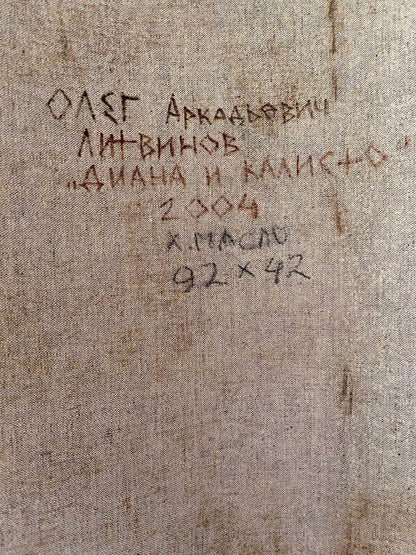 ОЛЕГ АРКАДЬЕВИЧ
ЛИТВИНОВ
„ДИАНА И КАЛИСТО"
2004
Х.МАСЛО
92 x 42